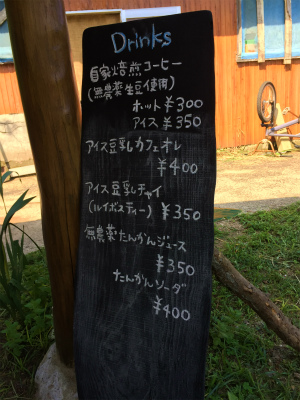 Drinks
自家焙煎コーヒー
(無農薬生豆使用)
ホット¥300
アイス¥350
アイス豆乳カフェオレ
¥400
アイス豆乳チャイ
(ルイボスティー)¥350
無農薬たんかんジュース
¥350
たんかんソーダ
¥400